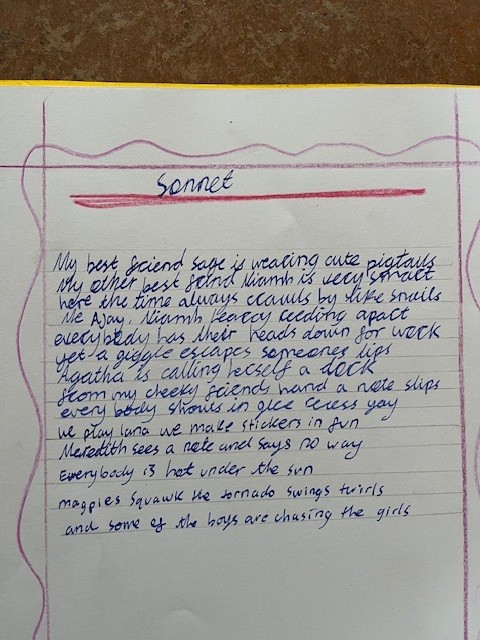 Sonnet
My best friend sage is wearing cute pigtails
My other best frind Niamh is very smart
here the time always crawls by like snails
Me Ajay, Niamh Kearcy reeding apart
everybody has their heads down for work
yet a giggle escapes someones lips
Agatha is calling herself a
from my cheeky friends hand a note slips
every body shouts in glee recess yay
we play lava we make stickers in fun
Meredith sees a note and says no way
Everybody is hot under the sun
magpies squawk the tornado swings twirls
and some of the boys are chasing the girls